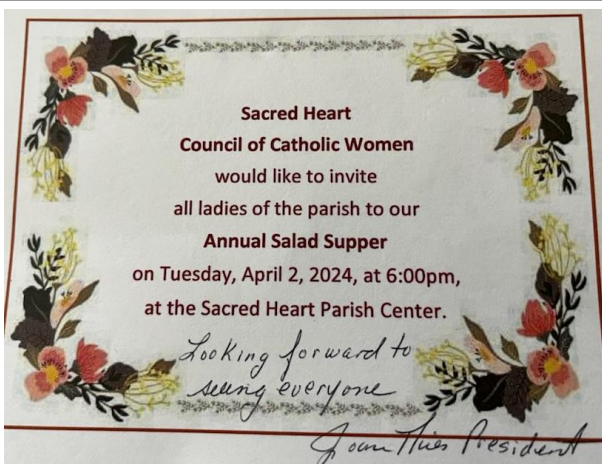 Sacred Heart
Council of Catholic Women
would like to invite
all ladies of the parish to our
Annual Salad Supper
on Tuesday, April 2, 2024, at 6:00pm,
at the Sacred Heart Parish Center.
Looking forward to
seeing everyone
Joan Thies President